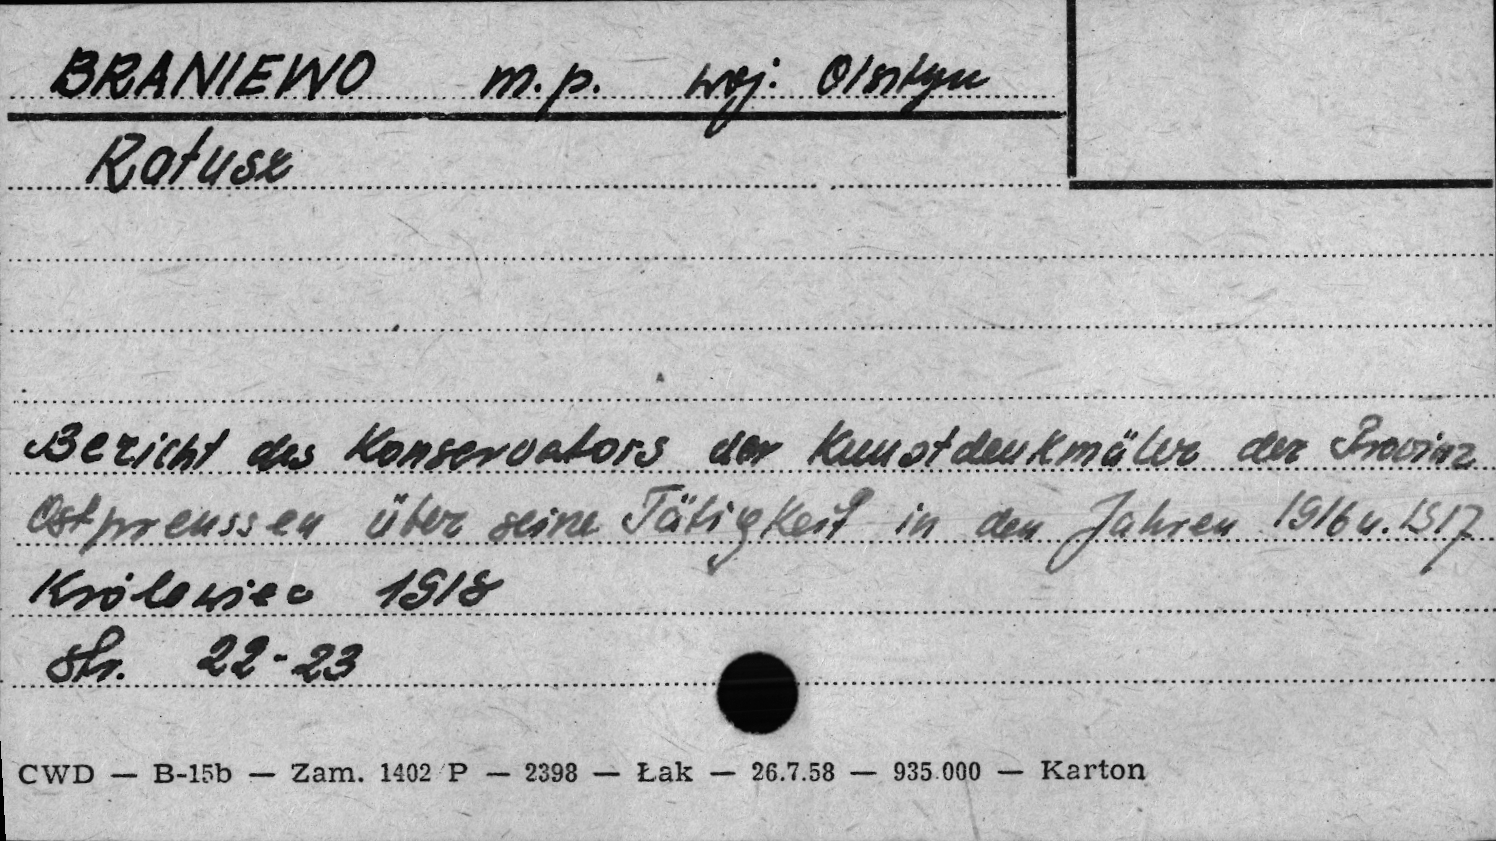 BRANIEWO m.p. woj: Olsztyn
Ratusz
Bericht des Konservators der Kunstdenkmäler der Provinz
Ostpreussen über seine Tätigkeit in den Jahren 1916 u. 1917
Królewiec 1918
str. 22-23
CWD — B-15b — Zam. 1402 P — 2398 — Łak — 26.7.58 — 935.000 — Karton